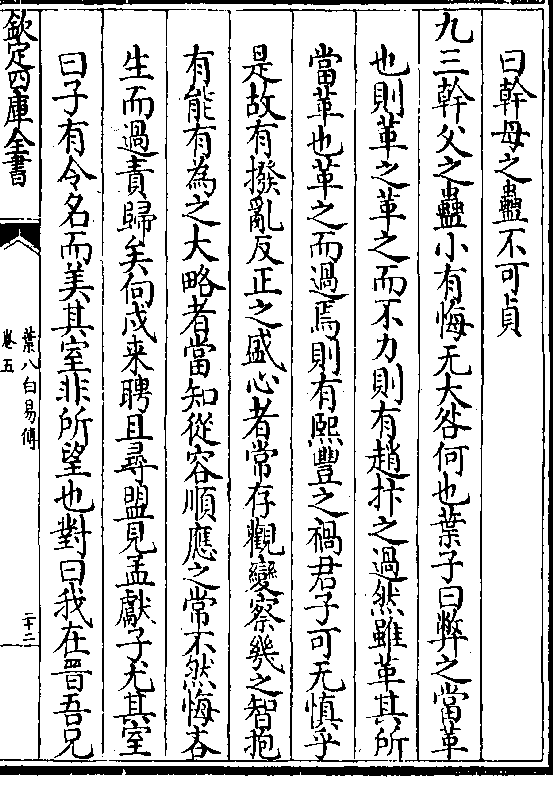 曰幹母之蠱不可貞
九三幹父之蠱小有悔无大咎何也葉子曰弊之當革
也則革之革之而不力則有趙抃之過然雖革其所
當革也革之而過焉則有熙豐之禍君子可无慎乎
是故有撥亂反正之盛心者常存觀變察幾之智抱
有能有為之大略者當知從容順應之常不然悔吝
生而過責歸矣向戌来聘且尋盟見孟獻子尤其室
曰子有令名而美其室非所望也對曰我在晉吾兄
欽定四庫全書
葉八白易傳
卷五
二十二